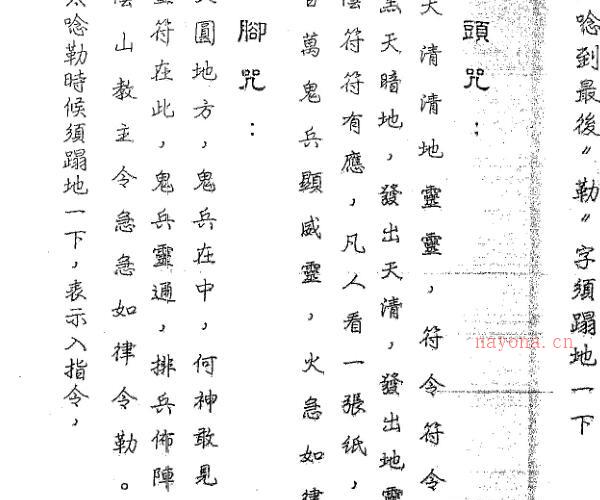 唸到最後〃勒〃字須蹋地一下
頭咒：
天清清地靈靈，符令符令
黑天暗地，發出天清，發出地靈
陰符符有應，凡人看一張纸，
百萬鬼兵顯威靈，火急如律
腳咒：
天圓地方，鬼兵在中，何神敢見
靈符在此，鬼兵靈通，排兵佈陣
陰山教主令急急如律令勒。
唸勒時候須蹋地一下，表示入指令，
nayona.cn